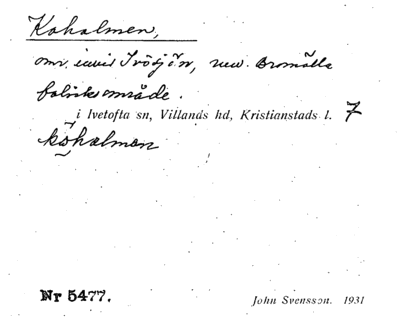 Koholmen,
omr. invid Ivösjön, nuv. Bromölla
fabriksområde.
i Ivetofta sn, Villands hd, Kristianstads l. 7
kòhălmen
Nr 5477.
John Svensson. 1931